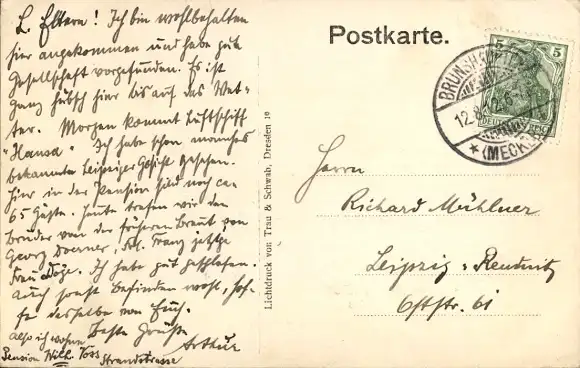 L. Eltern! Ich bin wohlbehalten
hier angekommen und habe gute
Gesellschaft vorgefunden. Es ist
ganz hübsch hier bis auf das Wet-
ter. Morgen kommt Luftschiff
"Hansa". Ich habe schon manches
bekannte Leipziger Gesicht gesehen.
hier in der Pension sind noch ca
65 Gäste. Heute trafen wir den
Bruder von der früheren Braut von
Georg Doerner, Frl. Franz jetzige
Frau Döge. Ich habe gut geschlafen.
Auch sonst befinden wohl, hof-
fe dasselbe von Euch.
Beste Grüße
Arthur
Also ich wohne
Pension Wilh. Voss Strandstrasse
Lichtdruck von Trau & Schwab, Dresden 19
Postkarte.
5 5
BRUNSHAUPTEN
12.8.12.6
*(MECKL
Herrn
Richard Mühlner
Leipzig-Reudnitz
Oststr. 61